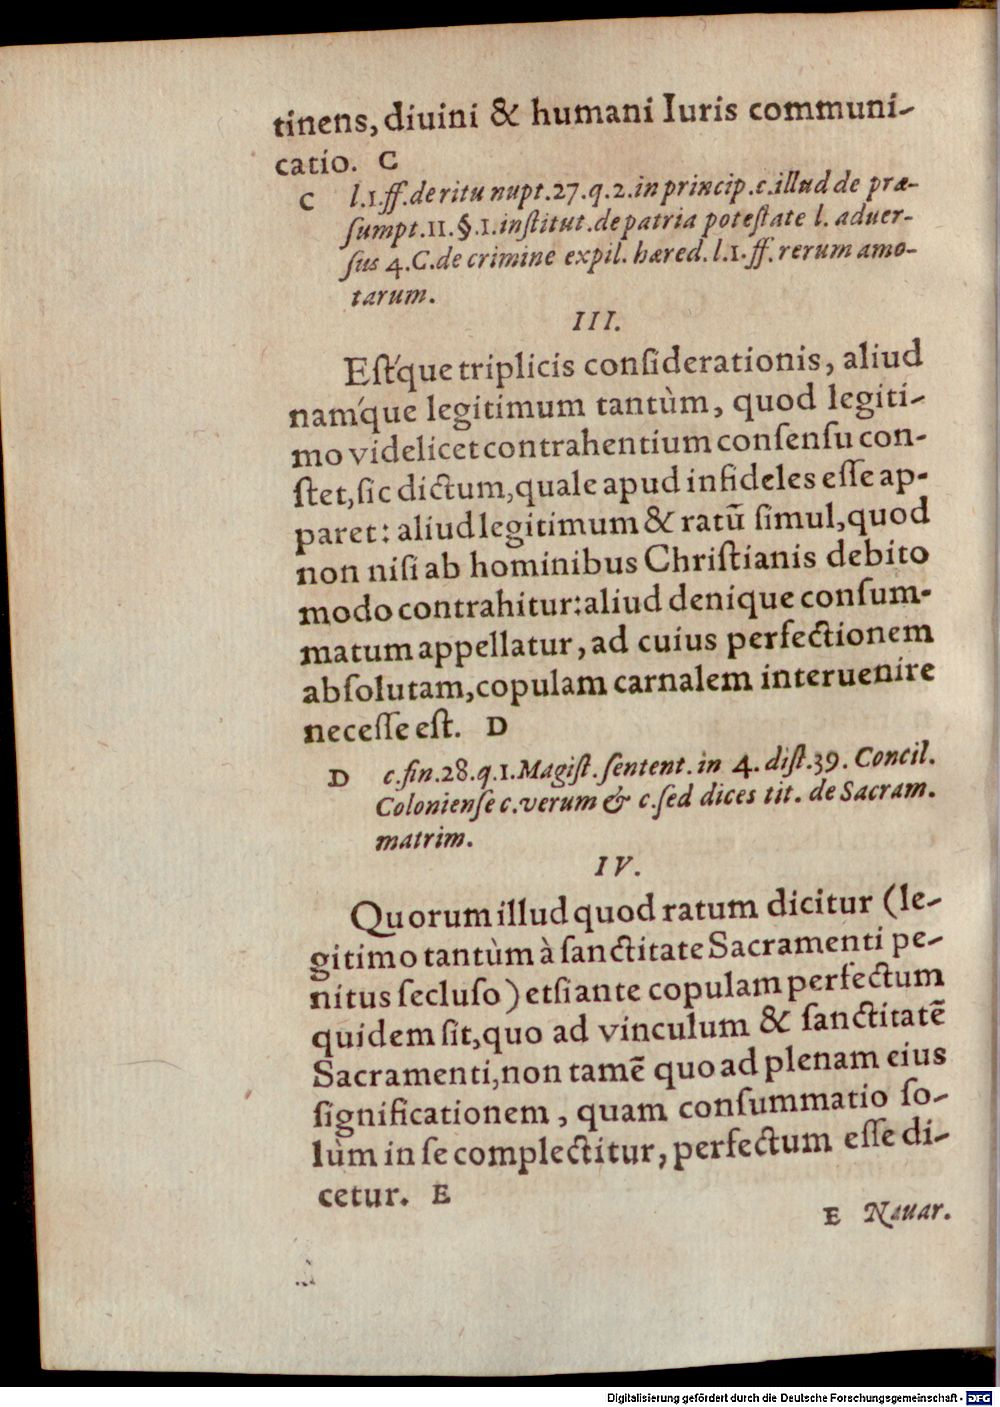 tinens, diuini & humani Iuris communi-
catio. C
C l.1.ff.de ritu nupt.27.q.2.in princip.c.illud de præ-
ſumpt.11.§.1.inſtitut.de patria poteſtate l. aduer-
ſus 4.C.de crimine expil. hæred.l.1.ff.rerum amo-
tarum.
III.
Eſt'que triplicis conſiderationis, aliud
nam'que legitimum tantùm, quod legiti-
mo videlicet contrahentium conſenſu con-
ſtet, ſic dictum, quale apud infideles eſſe ap-
paret: aliud legitimum & ratū ſimul, quod
non niſi ab hominibus Chriſtianis debito
modo contrahitur: aliud denique conſum-
matum appellatur, ad cuius perfectionem
abſolutam, copulam carnalem interuenire
neceſſe eſt. D
D c.fin.28.q.1.Magiſt.ſentent.in 4.diſt.39. Concil.
Colonienſe c.verum & c.ſed dices tit. de Sacram.
matrim.
IV.
Quorum illud quod ratum dicitur (le-
gitimo tantùm à ſanctitate Sacramenti pe-
nitus ſecluſo) etſi ante copulam perfectum
quidem ſit, quo ad vinculum & ſanctitatē
Sacramenti, non tamē quo ad plenam eius
ſignificationem, quam conſummatio ſo-
lùm in ſe complectitur, perfectum eſſe di-
cetur. E
E Nauar.
Digitalisierung gefördert durch die Deutsche Forschungsgemeinschaft - DFG